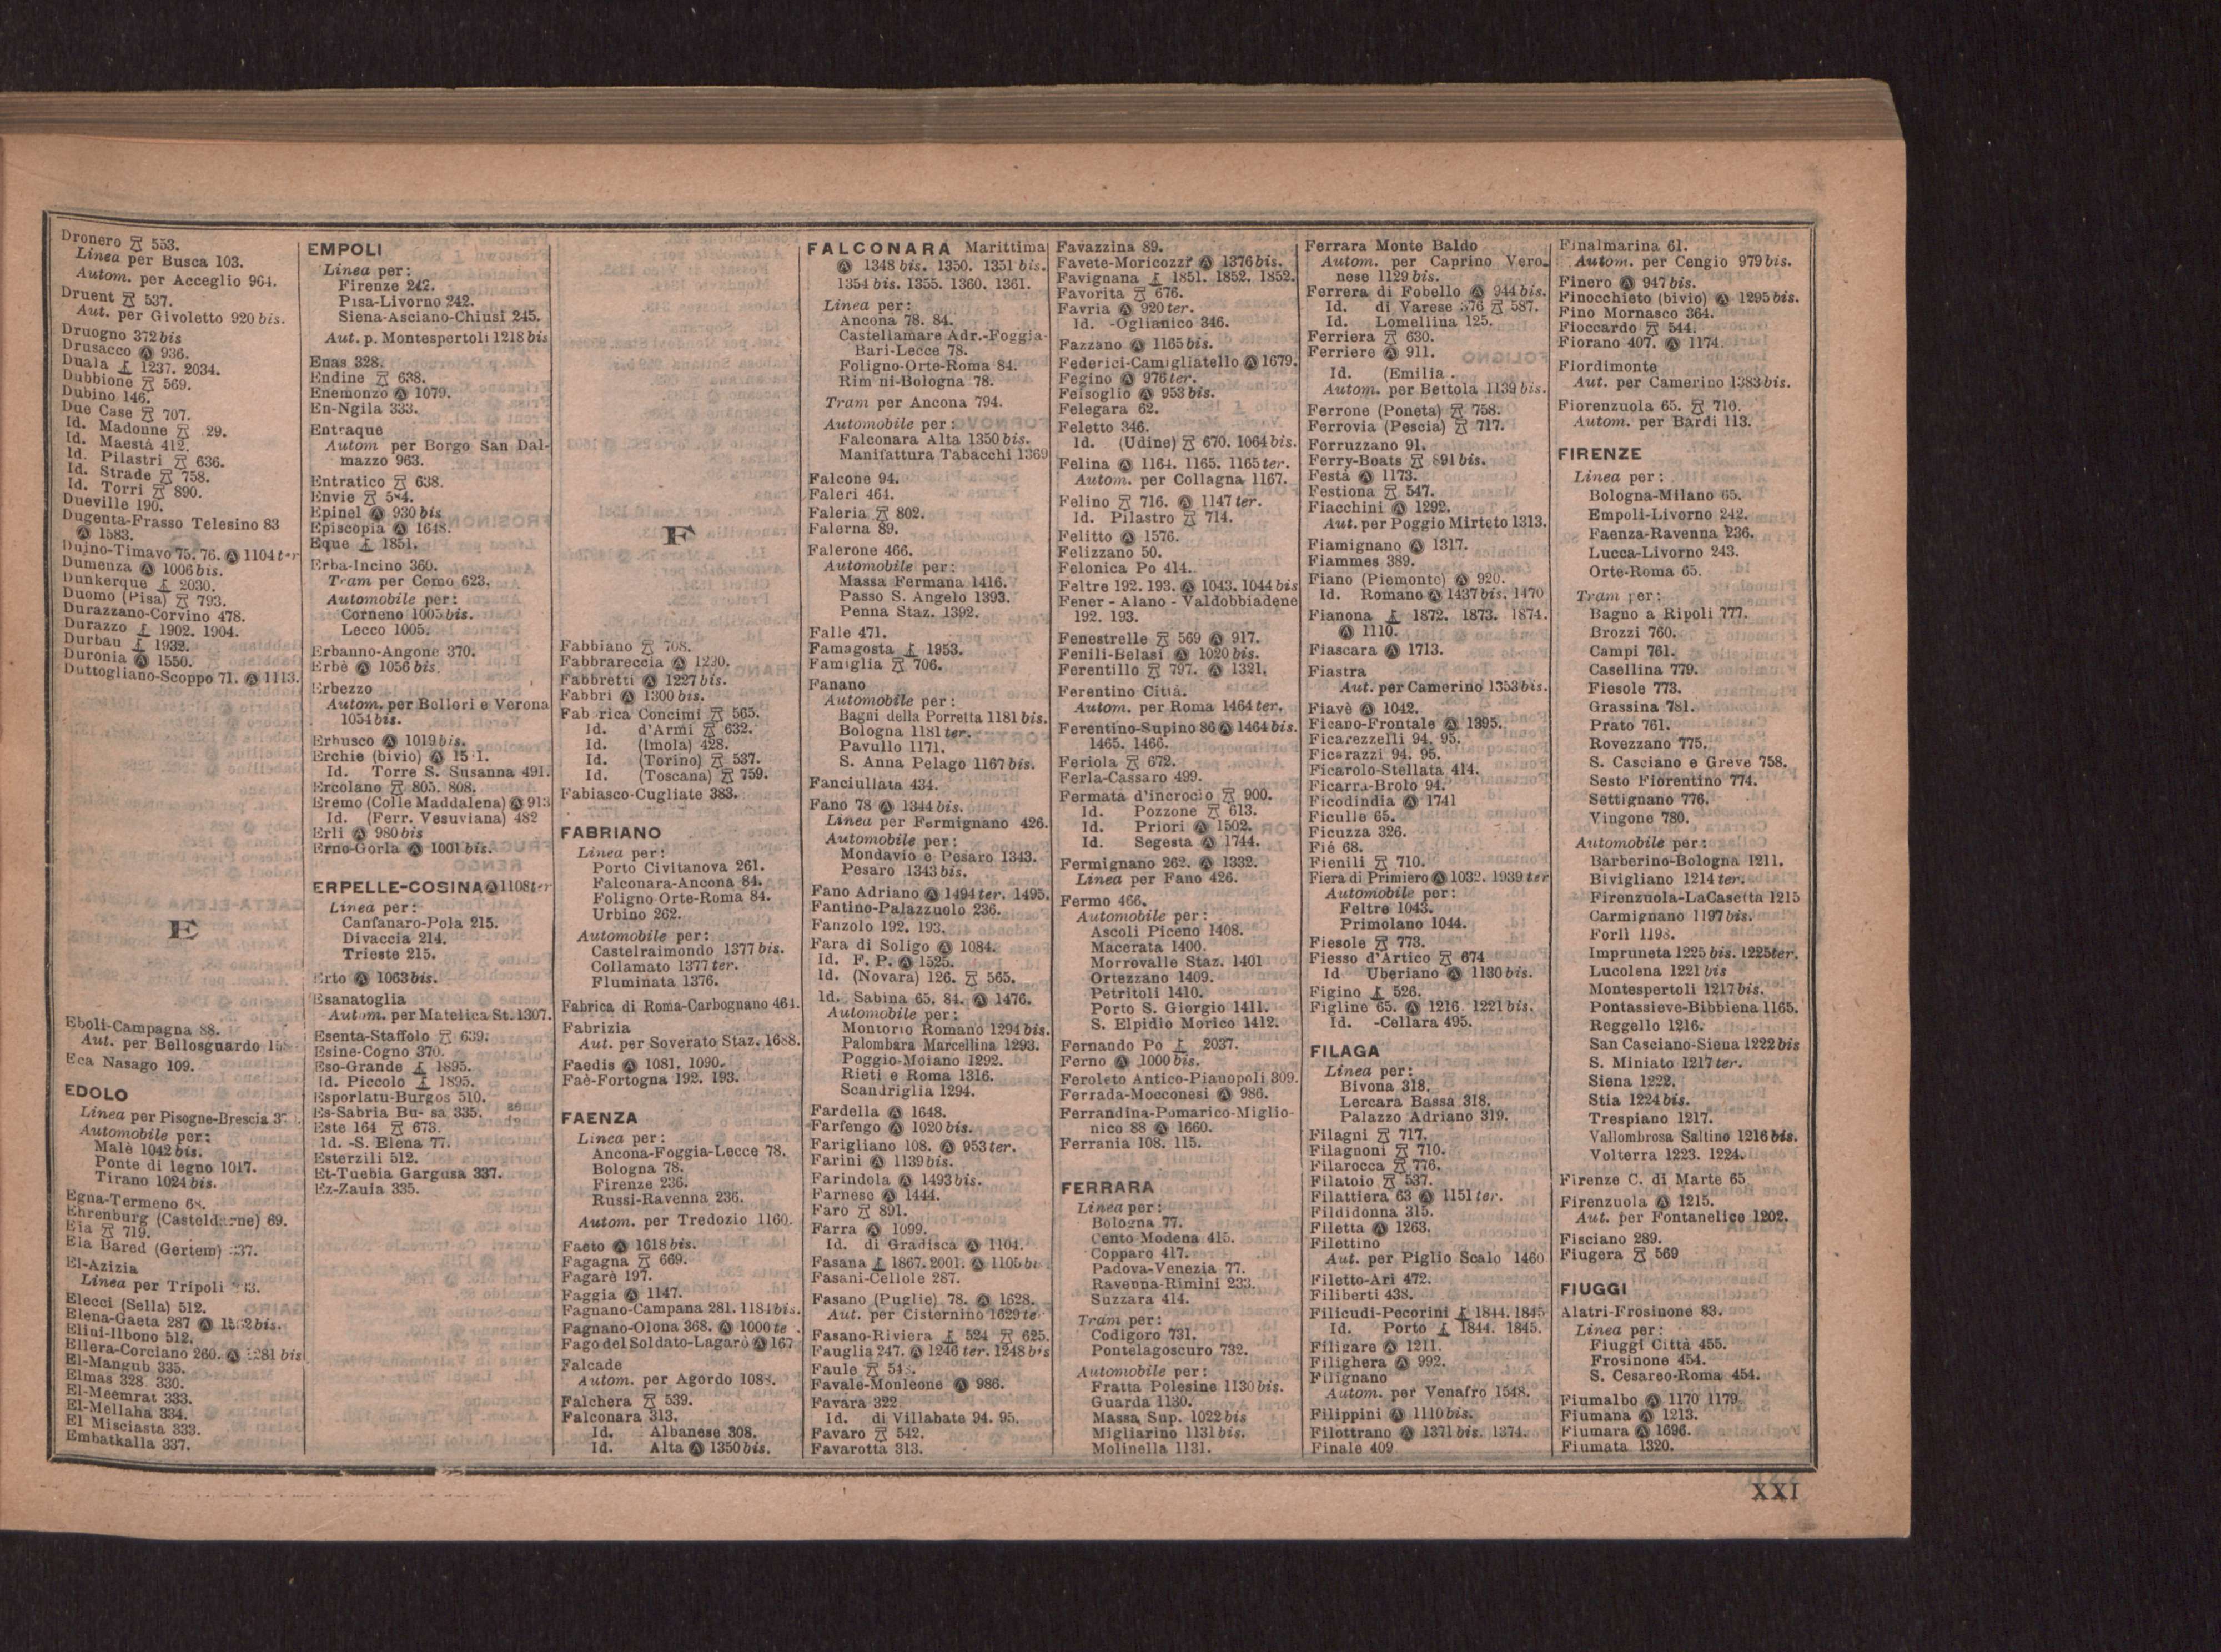 Dronero 553.
Linea per Busca 103.
Autom. per Acceglio 964.
Druent 537.
Aut. per Givoletto 920 bis.
Druogno 372 bis
Drusacco Ⓐ 936.
Duala 1237. 2034.
Dubbione 569.
Dubino 146.
Due Case 707.
Id. Madonne 29.
Id. Maestà 412.
Id. Pilastri 636.
Id. Strade 758.
Id. Torri 890.
Dueville 190.
Dugenta-Frasso Telesino 83
Ⓐ 1583.
Duino-Timavo 75. 76. Ⓐ 1104 ter
Dumenza Ⓐ 1006 bis.
Dunkerque 2030.
Duomo (Pisa) 793.
Durazzano-Corvino 478.
Durazzo 1902. 1904.
Durbau 1932.
Duronia Ⓐ 1550.
Duttogliano-Scoppo 71. Ⓐ 1113.
E
Eboli-Campagna 88.
Aut. per Bellosguardo
Eca Nasago 109.
EDOLO
Linea per Pisogne-Brescia
Automobile per:
Malè 1042 bis.
Ponte di legno 1017.
Tirano 1024 bis.
Egna-Termeno 68.
Ehrenburg 69.
Eia 719.
Eia Bared (Gertem)
El-Azizia
Linea per Tripoli
Elecci (Sella) 512.
Elena-Gaeta 287 Ⓐ
Elini-Ilbono 512.
Ellera-Corciano 260. Ⓐ 1281 bis
El-Mangub 335.
Elmas 328 330.
El-Meemrat 333.
El-Mellaha 334.
El Misciasta 333.
Embatkalla 337.
EMPOLI
Linea per:
Firenze 242.
Pisa-Livorno 242.
Siena-Asciano-Chiusi 245.
Aut. p. Montespertoli 1218 bis
Enas 328.
Endine 638.
Enemonzo Ⓐ 1079.
En-Ngila 333.
Entraque
Autom per Borgo San Dal-
mazzo 963.
Entratico 638.
Envie
Epinel Ⓐ 930 bis
Episcopia Ⓐ 1648.
Eque 1851.
Erba-Incino 360.
Tram per Como 623.
Automobile per:
Corneno 1005 bis.
Lecco 1005.
Erbanno-Angone 370.
Erbè Ⓐ 1056 bis.
Erbezzo
Autom. per Bellori e Verona
1054 bis.
Erbusco Ⓐ 1019 bis.
Erchie (bivio) Ⓐ
Id. Torre S. Susanna 491.
Ercolano 805. 808.
Eremo (Colle Maddalena) Ⓐ 913
Id. (Ferr. Vesuviana) 482
Erli Ⓐ 980 bis
Erno-Gorla Ⓐ 1001 bis.
ERPELLE-COSINA Ⓐ 1108 ter
Linea per:
Canfanaro-Pola 215.
Divaccia 214.
Trieste 215.
Erto Ⓐ 1063 bis.
Esanatoglia
Autom. per Matelica St. 1307.
Esenta-Staffolo 639.
Esine-Cogno 370.
Eso-Grande 1895.
Id. Piccolo 1895.
Esporlatu-Burgos 510.
Es-Sabria 335.
Este 164 673.
Id. -S. Elena 77.
Esterzili 512.
Et-Tuebia Gargusa 337.
Ez-Zauia 335.
F
Fabbiano 708.
Fabbrareccia Ⓐ 1230.
Fabbretti Ⓐ 1227 bis.
Fabbri Ⓐ 1300 bis.
Fabbrica Concimi 565.
Id. d'Armi 632.
Id. (Imola) 428.
Id. (Torino) 537.
Id. (Toscana) 759.
Fabiasco-Cugliate 383.
FABRIANO
Linea per:
Porto Civitanova 261.
Falconara-Ancona 84.
Foligno-Orte-Roma 84.
Urbino 262.
Automobile per:
Castelraimondo 1377 bis.
Collamato 1377 ter.
Fluminata 1376.
Fabrica di Roma-Carbognano 464.
Fabrizia
Aut. per Soverato Staz. 1688.
Faedis Ⓐ 1081. 1090.
Faè-Fortogna 192. 193.
FAENZA
Linea per:
Ancona-Foggia-Lecce 78.
Bologna 78.
Firenze 236.
Russi-Ravenna 236.
Autom. per Tredozio 1160.
Faeto Ⓐ 1618 bis.
Fagagna 669.
Fagarè 197.
Faggia Ⓐ 1147.
Fagnano-Campana 281. 1181 bis.
Fagnano-Olona 368. Ⓐ 1000 te
Fago del Soldato-Lagarò Ⓐ 167
Falcade
Autom. per Agordo 1088.
Falchera 539.
Falconara 313.
Id. Albanese 308.
Id. Alta Ⓐ 1350 bis.
FALCONARA Marittima
Ⓐ 1348 bis. 1350. 1351 bis.
1354 bis. 1355. 1360. 1361.
Linea per:
Ancona 78. 84.
Castellamare Adr.-Foggia-
Bari-Lecce 78.
Foligno-Orte-Roma 84.
Rimini-Bologna 78.
Tram per Ancona 794.
Automobile per:
Falconara Alta 1350 bis.
Manifattura Tabacchi 1369
Falcone 94.
Faleri 464.
Faleria 802.
Falerna 89.
Falerone 466.
Automobile per:
Massa Fermana 1416.
Passo S. Angelo 1393.
Penna Staz. 1392.
Falle 471.
Famagosta 1953.
Famiglia 706.
Fanano
Automobile per:
Bagni della Porretta 1181 bis.
Bologna 1181 ter.
Pavullo 1171.
S. Anna Pelago 1167 bis.
Fanciullata 434.
Fano 78 Ⓐ 1344 bis.
Linea per Fermignano 426.
Automobile per:
Mondavio e Pesaro 1343.
Pesaro 1343 bis.
Fano Adriano Ⓐ 1494 ter. 1495.
Fantino-Palazzuolo 236.
Fanzolo 192. 193.
Fara di Soligo Ⓐ 1084.
Id. F. P. Ⓐ 1525.
Id. (Novara) 126. 565.
Id. Sabina 65. 84. Ⓐ 1476.
Automobile per:
Montorio Romano 1294 bis.
Palombara Marcellina 1293.
Poggio-Moiano 1292.
Rieti e Roma 1316.
Scandriglia 1294.
Fardella Ⓐ 1648.
Farfengo Ⓐ 1020 bis.
Farigliano 108. Ⓐ 953 ter.
Farini Ⓐ 1139 bis.
Farindola Ⓐ 1493 bis.
Farnese Ⓐ 1444.
Faro 891.
Farra Ⓐ 1099.
Id. di Gradisca Ⓐ 1104.
Fasana 1867. 2001. Ⓐ 1105 bi
Fasani-Cellole 287.
Fasano (Puglie) 78. Ⓐ 1628.
Aut. per Cisternino 1629 te
Fasano-Riviera 524 625.
Fauglia 247. Ⓐ 1246 ter. 1248 bis
Faule
Favale-Monleone Ⓐ 986.
Favara 322
Id. di Villabate 94. 95.
Favaro 542.
Favarotta 313.
Favazzina 89.
Favete-Moricozzi Ⓐ 1376 bis.
Favignana 1851. 1852. 1852.
Favorita 676.
Favria Ⓐ 920 ter.
Id. -Oglianico 346.
Fazzano Ⓐ 1165 bis.
Federici-Camigliatello Ⓐ 1679.
Fegino Ⓐ 976 ter.
Feisoglio Ⓐ 953 bis.
Felegara 62.
Feletto 346.
Id. (Udine) 670. 1064 bis.
Felina Ⓐ 1164. 1165. 1165 ter.
Autom. per Collagna 1167.
Felino 716. Ⓐ 1147 ter.
Id. Pilastro 714.
Felitto Ⓐ 1576.
Felizzano 50.
Felonica Po 414.
Feltre 192. 193. Ⓐ 1043. 1044 bis
Fener - Alano - Valdobbiadene
192. 193.
Fenestrelle 569 Ⓐ 917.
Fenili-Belasi Ⓐ 1020 bis.
Ferentillo 797. Ⓐ 1321.
Ferentino Città.
Autom. per Roma 1464 ter.
Ferentino-Supino 86 Ⓐ 1464 bis.
1465. 1466.
Feriola 672.
Ferla-Cassaro 499.
Fermata d'incrocio 900.
Id. Pozzone 613.
Id. Priori Ⓐ 1502.
Id. Segesta Ⓐ 1744.
Fermignano 262. Ⓐ 1332.
Linea per Fano 426.
Fermo 466.
Automobile per:
Ascoli Piceno 1408.
Macerata 1400.
Morrovalle Staz. 1401
Ortezzano 1409.
Petritoli 1410.
Porto S. Giorgio 1411.
S. Elpidio Morico 1412.
Fernando Po 2037.
Ferno Ⓐ 1000 bis.
Feroleto Antico-Pianopoli 309.
Ferrada-Mocconesi Ⓐ 986.
Ferrandina-Pomarico-Miglio-
nico 88 Ⓐ 1660.
Ferrania 108. 115.
FERRARA
Linea per:
Bologna 77.
Cento-Modena 415.
Copparo 417.
Padova-Venezia 77.
Ravenna-Rimini 233.
Suzzara 414.
Tram per:
Codigoro 731.
Pontelagoscuro 732.
Automobile per:
Fratta Polesine 1130 bis.
Guarda 1130.
Massa Sup. 1022 bis
Migliarino 1131 bis.
Molinella 1131.
Ferrara Monte Baldo
Autom. per Caprino Vero-
nese 1129 bis.
Ferrera di Fobello Ⓐ 944 bis.
Id. di Varese 376 587.
Id. Lomellina 125.
Ferriera 630.
Ferriere Ⓐ 911.
Id. (Emilia.
Autom. per Bettola 1139 bis.
Ferrone (Poneta) 758.
Ferrovia (Pescia) 717.
Ferruzzano 91.
Ferry-Boats 891 bis.
Festà Ⓐ 1173.
Festiona 547.
Fiacchini Ⓐ 1292.
Aut. per Poggio Mirteto 1313.
Fiamignano Ⓐ 1317.
Fiammes 389.
Fiano (Piemonte) Ⓐ 920.
Id. Romano Ⓐ 1437 bis. 1470
Fianona 1872. 1873. 1874.
Ⓐ 1110.
Fiascara Ⓐ 1713.
Fiastra
Aut. per Camerino 1353 bis.
Fiavè Ⓐ 1042.
Ficano-Frontale Ⓐ 1395.
Ficarezzelli 94. 95.
Ficarazzi 94. 95.
Ficarolo-Stellata 414.
Ficarra-Brolo 94.
Ficodindia Ⓐ 1741
Ficulle 65.
Ficuzza 326.
Fiè 68.
Fienili 710.
Fiera di Primiero Ⓐ 1032. 1939 ter
Automobile per:
Feltre 1043.
Primolano 1044.
Fiesole 773.
Fiesso d'Artico 674
Id Uberiano Ⓐ 1130 bis.
Figino 526.
Figline 65. Ⓐ 1216. 1221 bis.
Id. -Cellara 495.
FILAGA
Linea per:
Bivona 318.
Lercara Bassa 318.
Palazzo Adriano 319.
Filagni 717.
Filagnoni 710.
Filarocca 776.
Filatoio 537.
Filattiera 63 Ⓐ 1151 ter.
Fildidonna 315.
Filetta Ⓐ 1263.
Filettino
Aut. per Piglio Scalo 1460
Filetto-Ari 472.
Filiberti 438.
Filicudi-Pecorini 1844. 1845
Id. Porto 1844. 1845.
Filigare Ⓐ 1211.
Filighera Ⓐ 992.
Filignano
Autom. per Venafro 1548.
Filippini Ⓐ 1110 bis.
Filottrano Ⓐ 1371 bis. 1374.
Finale 409
Finalmarina 61.
Autom. per Cengio 979 bis.
Finero Ⓐ 947 bis.
Finocchieto (bivio) Ⓐ 1295 bis.
Fino Mornasco 364.
Fioccardo 544.
Fiorano 407. Ⓐ 1174.
Fiordimonte
Aut. per Camerino 1383 bis.
Fiorenzuola 65. 710.
Autom. per Bardi 113.
FIRENZE
Linea per:
Bologna-Milano 65.
Empoli-Livorno 242.
Faenza-Ravenna 236.
Lucca-Livorno 243.
Orte-Roma 65.
Tram per:
Bagno a Ripoli 777.
Brozzi 760.
Campi 761.
Casellina 779.
Fiesole 773.
Grassina 781.
Prato 761.
Rovezzano 775.
S. Casciano e Greve 758.
Sesto Fiorentino 774.
Settignano 776.
Vingone 780.
Automobile per:
Barberino-Bologna 1211.
Bivigliano 1214 ter.
Firenzuola-LaCasetta 1215
Carmignano 1197 bis.
Forlì 1198.
Impruneta 1225 bis. 1225 ter.
Lucolena 1221 bis
Montespertoli 1217 bis.
Pontassieve-Bibbiena 1165.
Reggello 1216.
San Casciano-Siena 1222 bis
S. Miniato 1217 ter.
Siena 1222.
Stia 1224 bis.
Trespiano 1217.
Vallombrosa Saltino 1216 bis.
Volterra 1223. 1224.
Firenze C. di Marte 65
Firenzuola Ⓐ 1215.
Aut. per Fontanelice 1202.
Fisciano 289.
Fiugera 569
FIUGGI
Alatri-Frosinone 83.
Linea per:
Fiuggi Città 455.
Frosinone 454.
S. Cesareo-Roma 454.
Fiumalbo Ⓐ 1170 1179
Fiumana Ⓐ 1213.
Fiumara Ⓐ 1696.
Fiumata 1320.
XXI